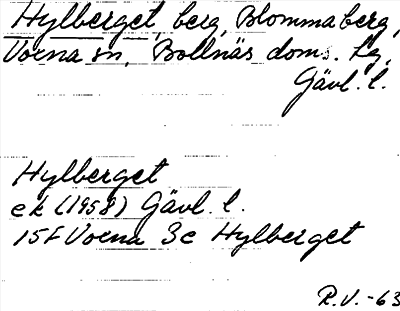 Hylberget, berg, Blommaberg,
Voxna sn, Bollnäs doms. lg,
Gävl. l.
Hylberget
ek (1958) Gävl. l.
15F Voxna 3e Hylberget
R.V.-63